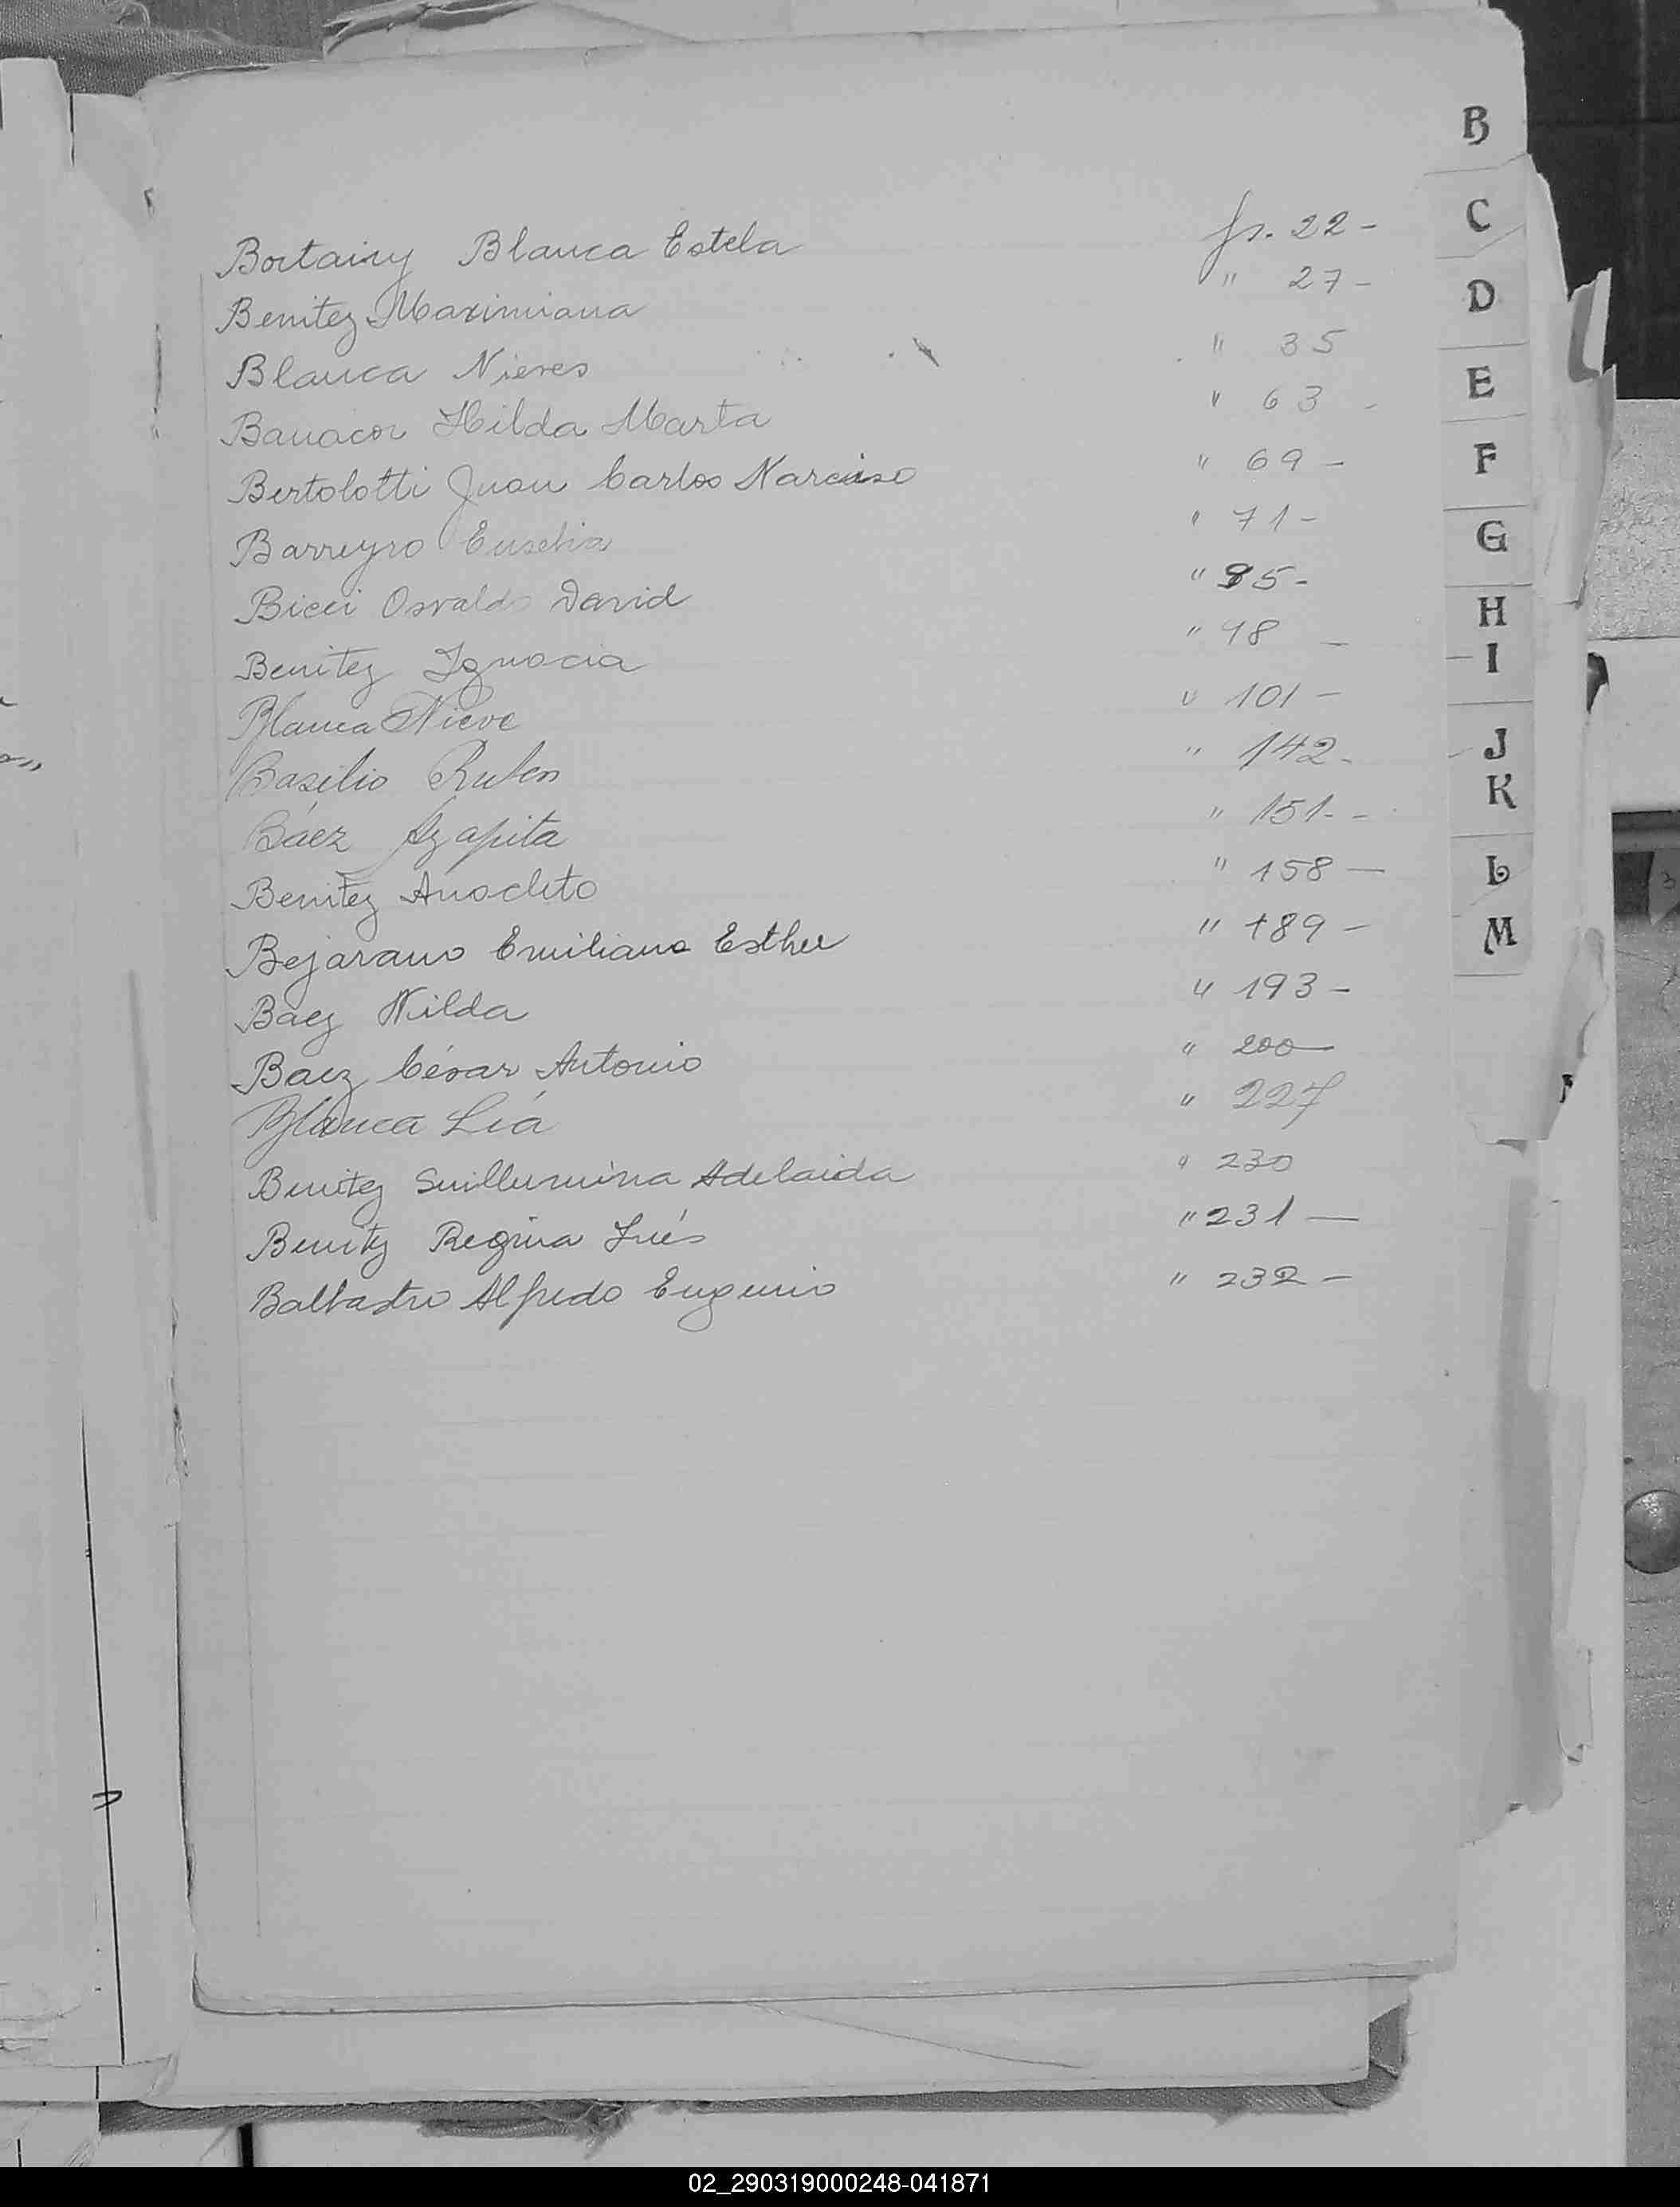 B
C
D
E
F
G
H
I
J
K
L
M
Bortairy Blanca Estela fs. 22 -
Benitez Maximiana " 27 -
Blanca Nieves " 35
Banacor Hilda Marta " 63 -
Bertolotti Juan Carlos Narciso " 69 -
Barreyro Eusebia " 71 -
Bicci Osvaldo David " 95 -
Benitez Ignacia " 98 -
Blanca Nieve " 101 -
Basilio Ruben " 142 -
Báez Agapita " 151 - -
Benitez Anacleto " 158 -
Bejarano Emiliana Esther " 189 -
Baez Nilda " 193 -
Baez César Antonio " 200 -
Blanca Lía " 227
Benitez Guillermina Adelaida " 230
Benitez Regina Inés " 231 -
Balbastro Alfredo Eugenio " 232 -
02_290319000248-041871